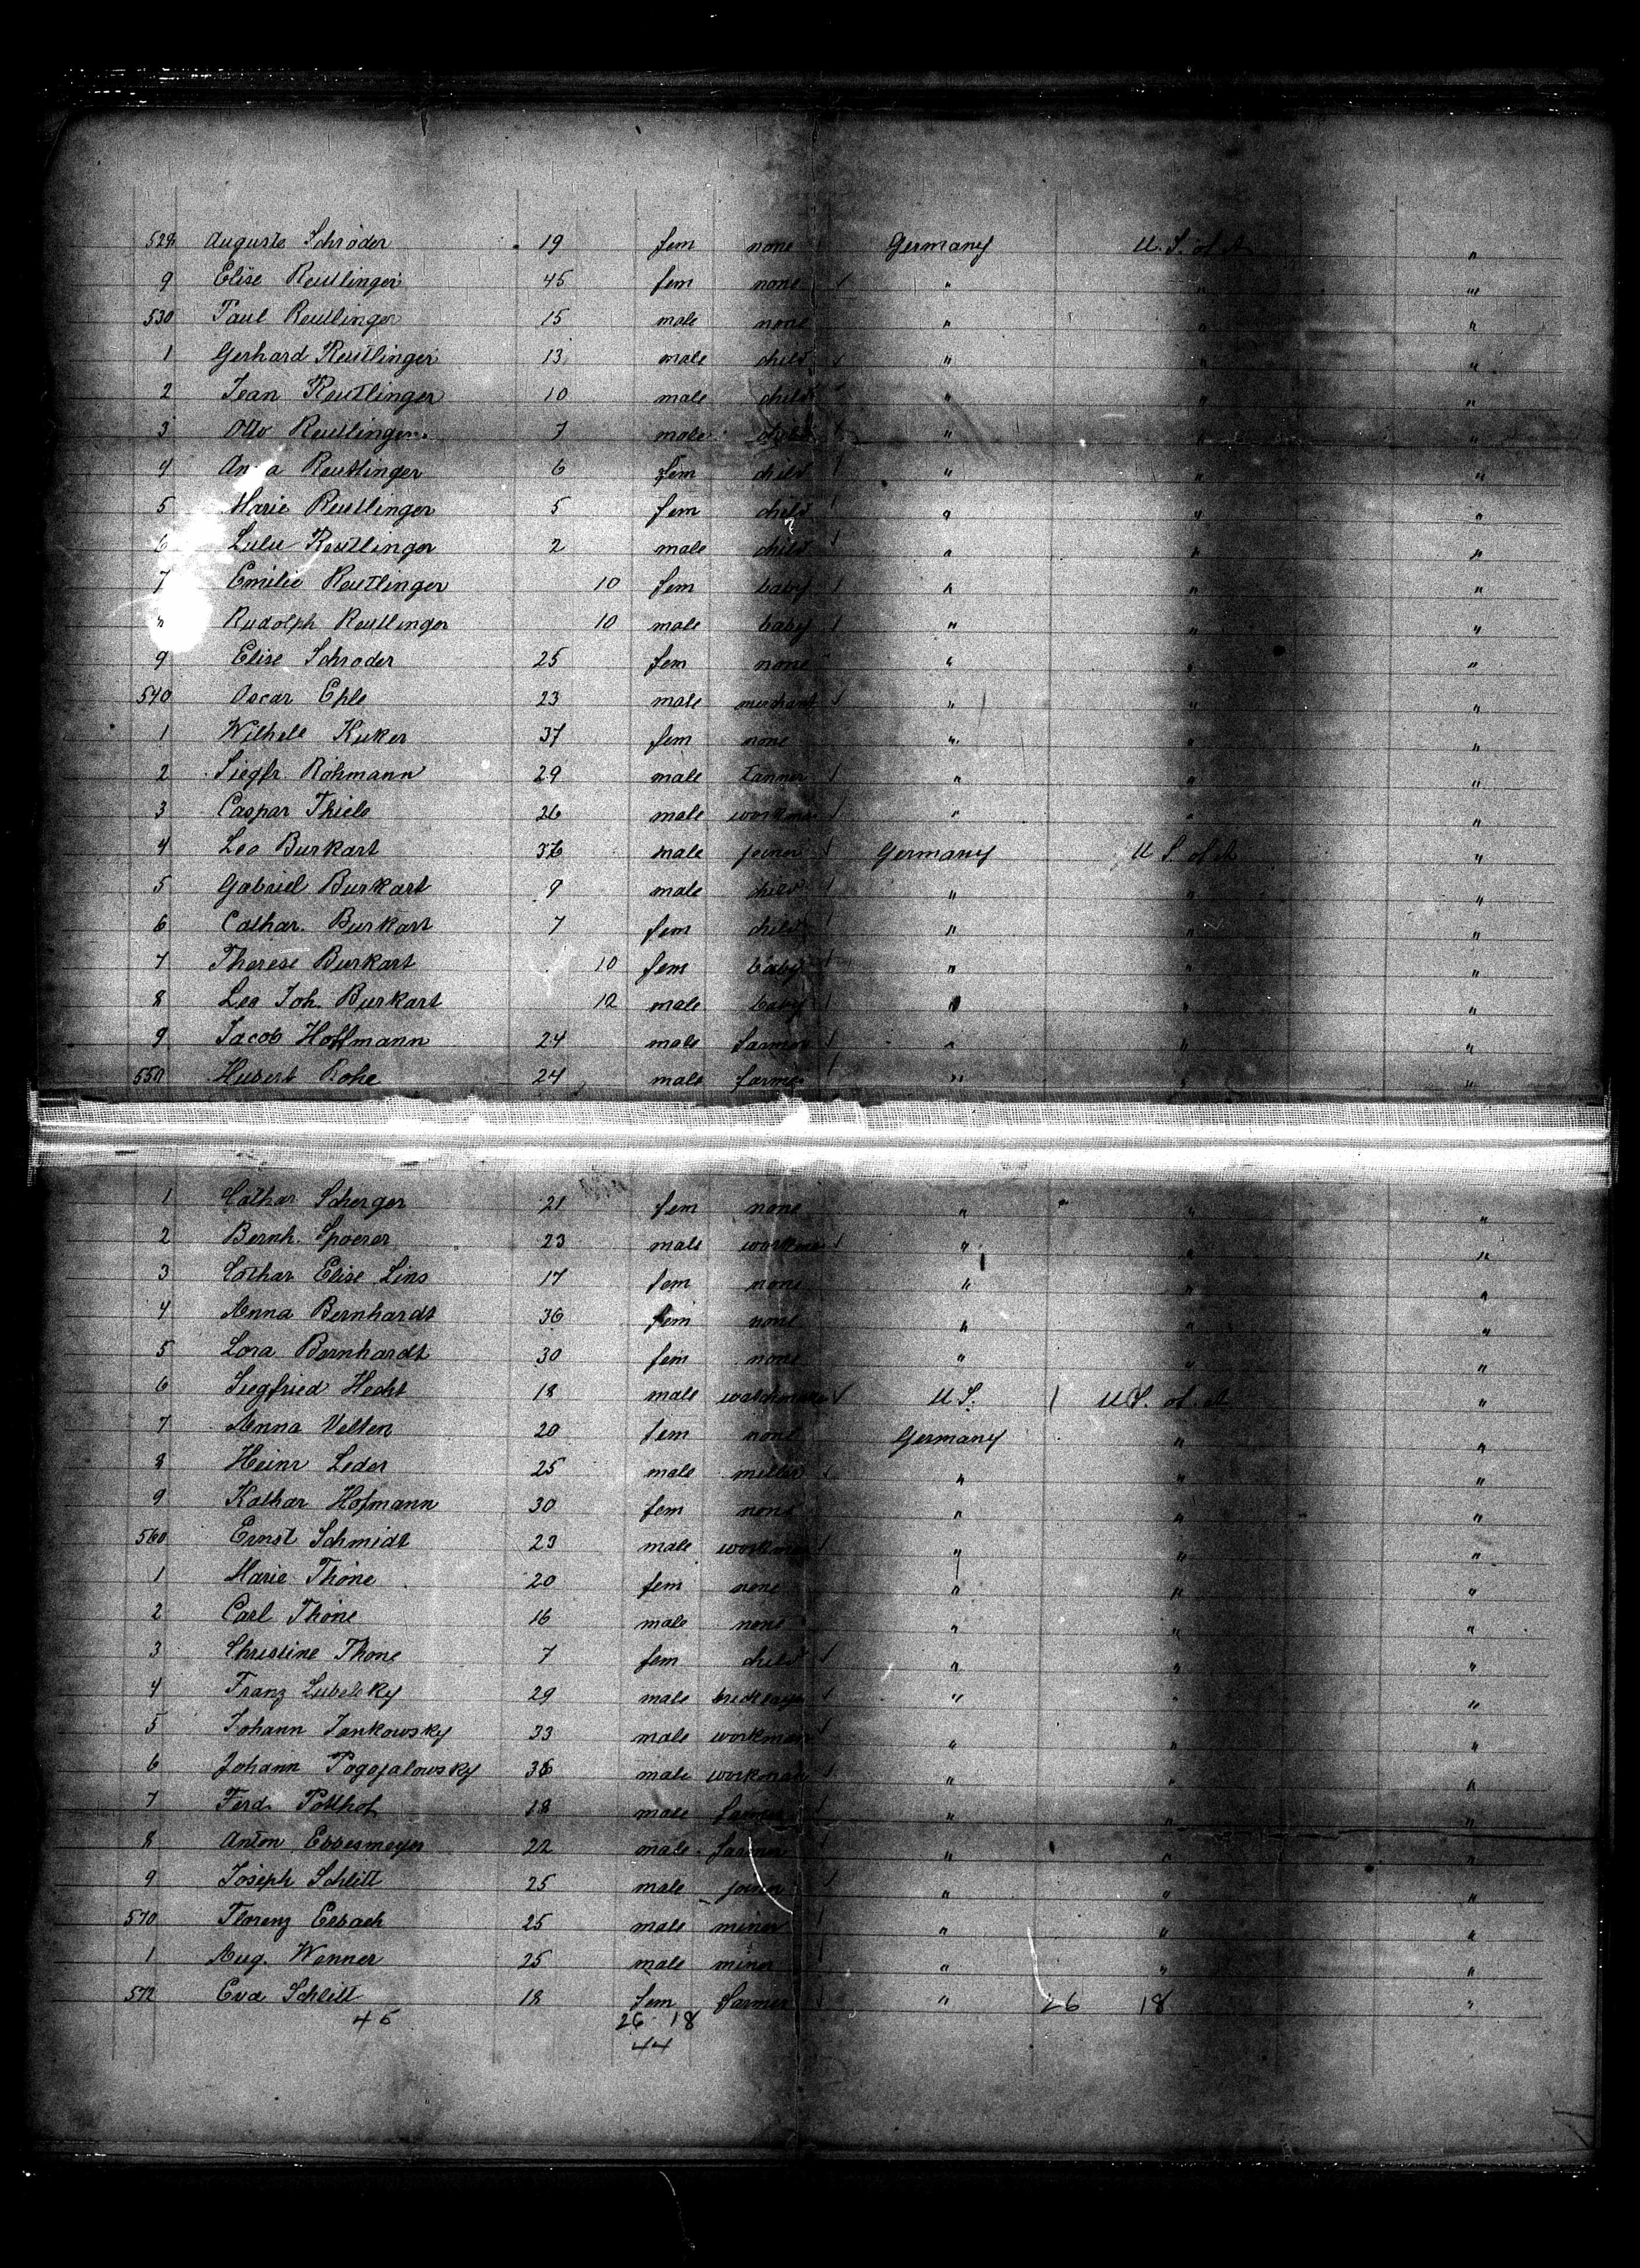 528 Auguste Schröder 19 fem none Germany U. S. of A "
9 Elise Reutlinger 45 fem none " " "
530 Paul Reutlinger 15 male none " " "
1 Gerhard Reutlinger 13 male child " " "
2 Jean Reutlinger 10 male child " " "
3 Otto Reutlinger 7 male child " " "
4 An a Reutlinger 6 fem child " " "
5 Marie Reutlinger 5 fem child " " "
6 Lulu Reutlinger 2 male child " " "
7 Emilie Reutlinger 10 fem baby " " "
Rudolph Reutlinger 10 male baby " " "
9 Elise Schroder 25 fem none " " "
540 Oscar Eple 23 male merchant " " "
1 Wilhele Kuker 37 fem none " " "
2 Siegfr. Rohmann 29 male tanner " " "
3 Caspar Thiele 26 male workman " " "
4 Leo Burkart 36 male joiner Germany U S. of A "
5 Gabriel Burkart 9 male child " " "
6 Cathar. Burkart 7 fem child " " "
7 Therese Burkart 10 fem baby " " "
8 Leo Joh. Burkart 10 male baby " " "
9 Jacob Hoffmann 24 male farmer " " "
550 Hubert Rohe 24 male farmer " " "
1 Cathar Scherger 21 fem none " " "
2 Bernh. Spoerer 23 male workman " " "
3 Cathar Elise Lins 17 fem none " " "
4 Anna Bernhardt 36 fem none " " "
5 Lora Bernhardt 30 fem none " " "
6 Siegfried Hecht 18 male watchmaker U S. U S. of A "
7 Anna Velten 20 fem none Germany " "
8 Heinr Leder 25 male miller " " "
9 Kathar Hofmann 30 fem none " " "
560 Ernst Schmidt 23 male workman " " "
1 Marie Thöne 20 fem none " " "
2 Carl Thöne 16 male none " " "
3 Christine Thone 7 fem child " " "
4 Franz Lubelsky 29 male bricklayer " " "
5 Johann Jankowsky 33 male workman " " "
6 Johann Pogojalowsky 36 male workman " " "
7 Ferd. Potthof 18 male farmer " " "
8 Anton Ebbesmeyer 22 male farmer " " "
9 Joseph Schlitt 25 male joiner " " "
570 Florenz Erbach 25 male miner " " "
1 Aug. Wenner 25 male miner " " "
572 Eva Schlitt 18 fem farmer " 26 18 "
45 26 18
44